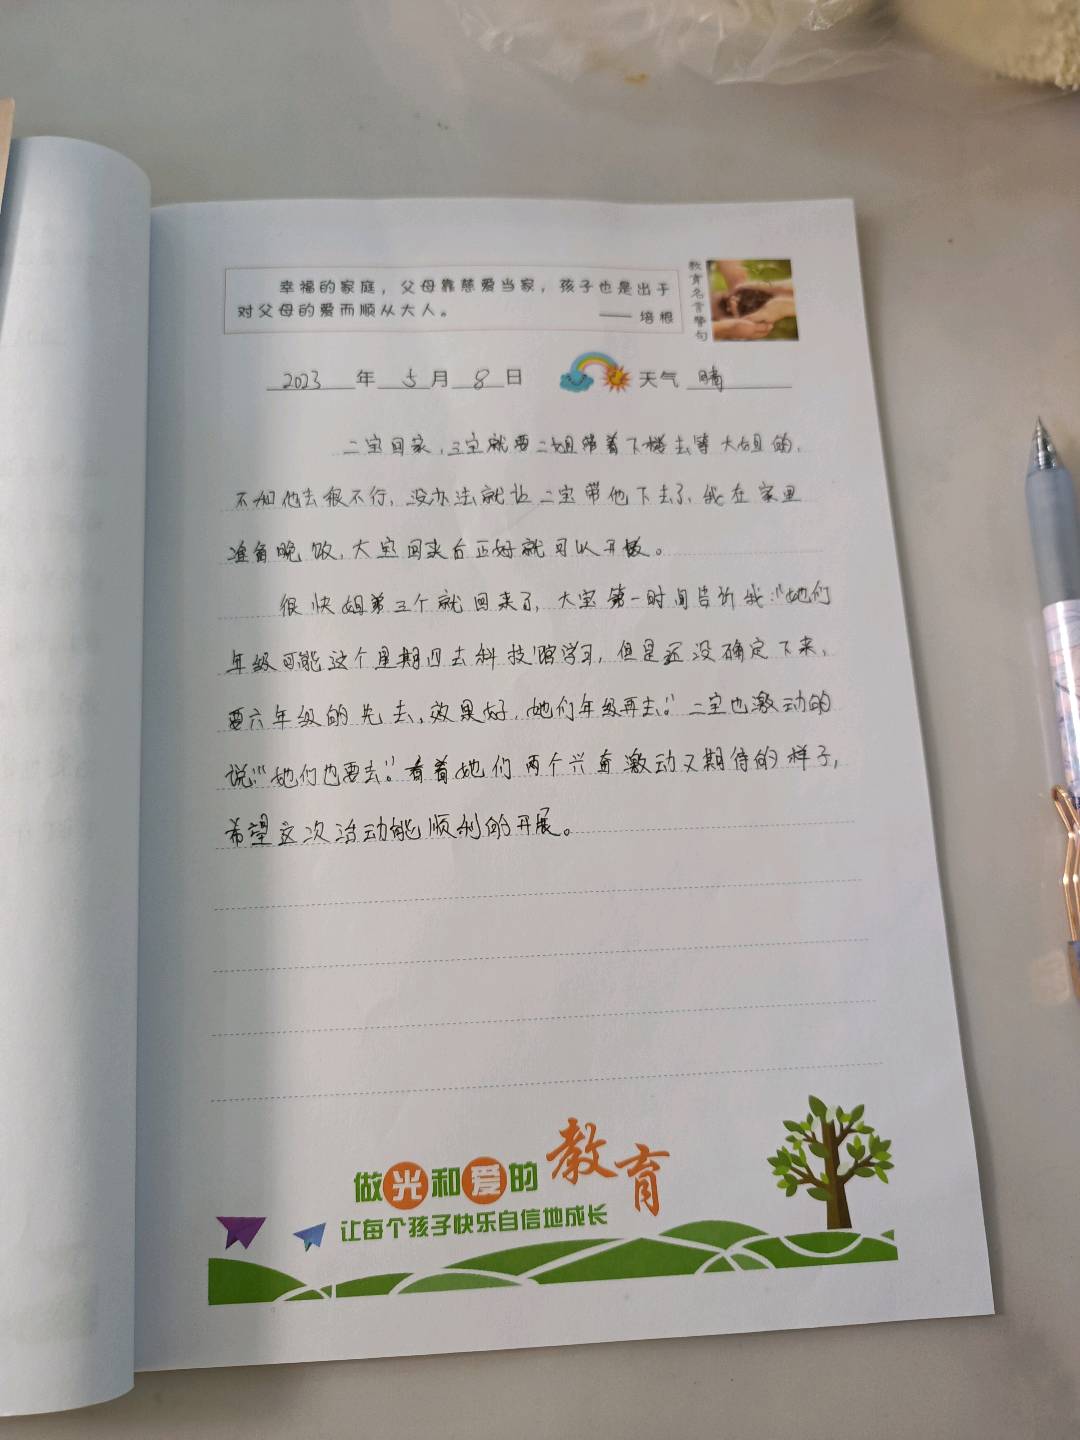 幸福的家庭，父母靠慈爱当家，孩子也是出于
对父母的爱而顺从大人。
—— 培根
教育名言警句
2023 年 5 月 8 日 天气 晴
二宝回家，三宝就要二姐带着下楼去等大姐的，
不和他去很不行，没办法就让二宝带他下去了，我在家里
准备晚饭，大宝回来后正好就可以开饭。
很快姐弟三个就回来了，大宝第一时间告诉我：“她们
年级可能这个星期四去科技馆学习，但是还没确定下来，
要六年级的先去，效果好，她们年级再去。”二宝也激动的
说：“她们也要去。”看着她们两个兴奋激动又期待的样子，
希望这次活动能顺利的开展。
做光和爱的教育
让每个孩子快乐自信地成长